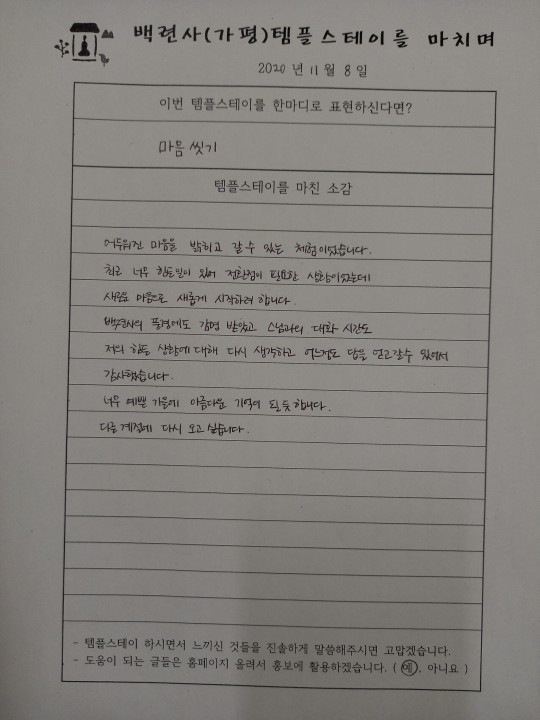 백련사(가평)템플스테이를 마치며
2020 년 11 월 8 일
이번 템플스테이를 한마디로 표현하신다면?
마음 씻기
템플스테이를 마친 소감
어두워진 마음을 밝히고 갈 수 있는 체험이었습니다.
최근 너무 힘든일이 있어 전환점이 필요한 상황이었는데
새로운 마음으로 새롭게 시작하려 합니다.
백련사의 풍경에도 감명 받았고 스님과의 대화 시간도
저의 힘든 상황에 대해 다시 생각하고 어느정도 답을 얻고갈수 있어서
감사했습니다.
너무 예쁜 가을에 아름다운 기억이 될 듯 합니다.
다른 계절에 다시 오고 싶습니다.
- 템플스테이 하시면서 느끼신 것들을 진솔하게 말씀해주시면 고맙겠습니다.
- 도움이 되는 글들은 홈페이지 올려서 홍보에 활용하겠습니다. ( 예, 아니요 )